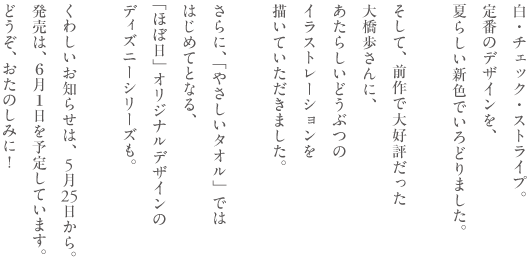 白・チェック　ストライプ。
定番のデザインを、
夏らしい新色でいろどりました。
そして、前作で大好評だった
大橋歩さんに、
あたらしいどうぶつの
イラストレーションを
描いていただきました。
さらに、「やさしいタオル」では
はじめてとなる、
「ほぼ日」オリジナルデザインの
ディズニーシリーズも。
くわしいお知らせは、5月25日から。
発売は、6月1日を予定しています。
どうぞ、おたのしみに！